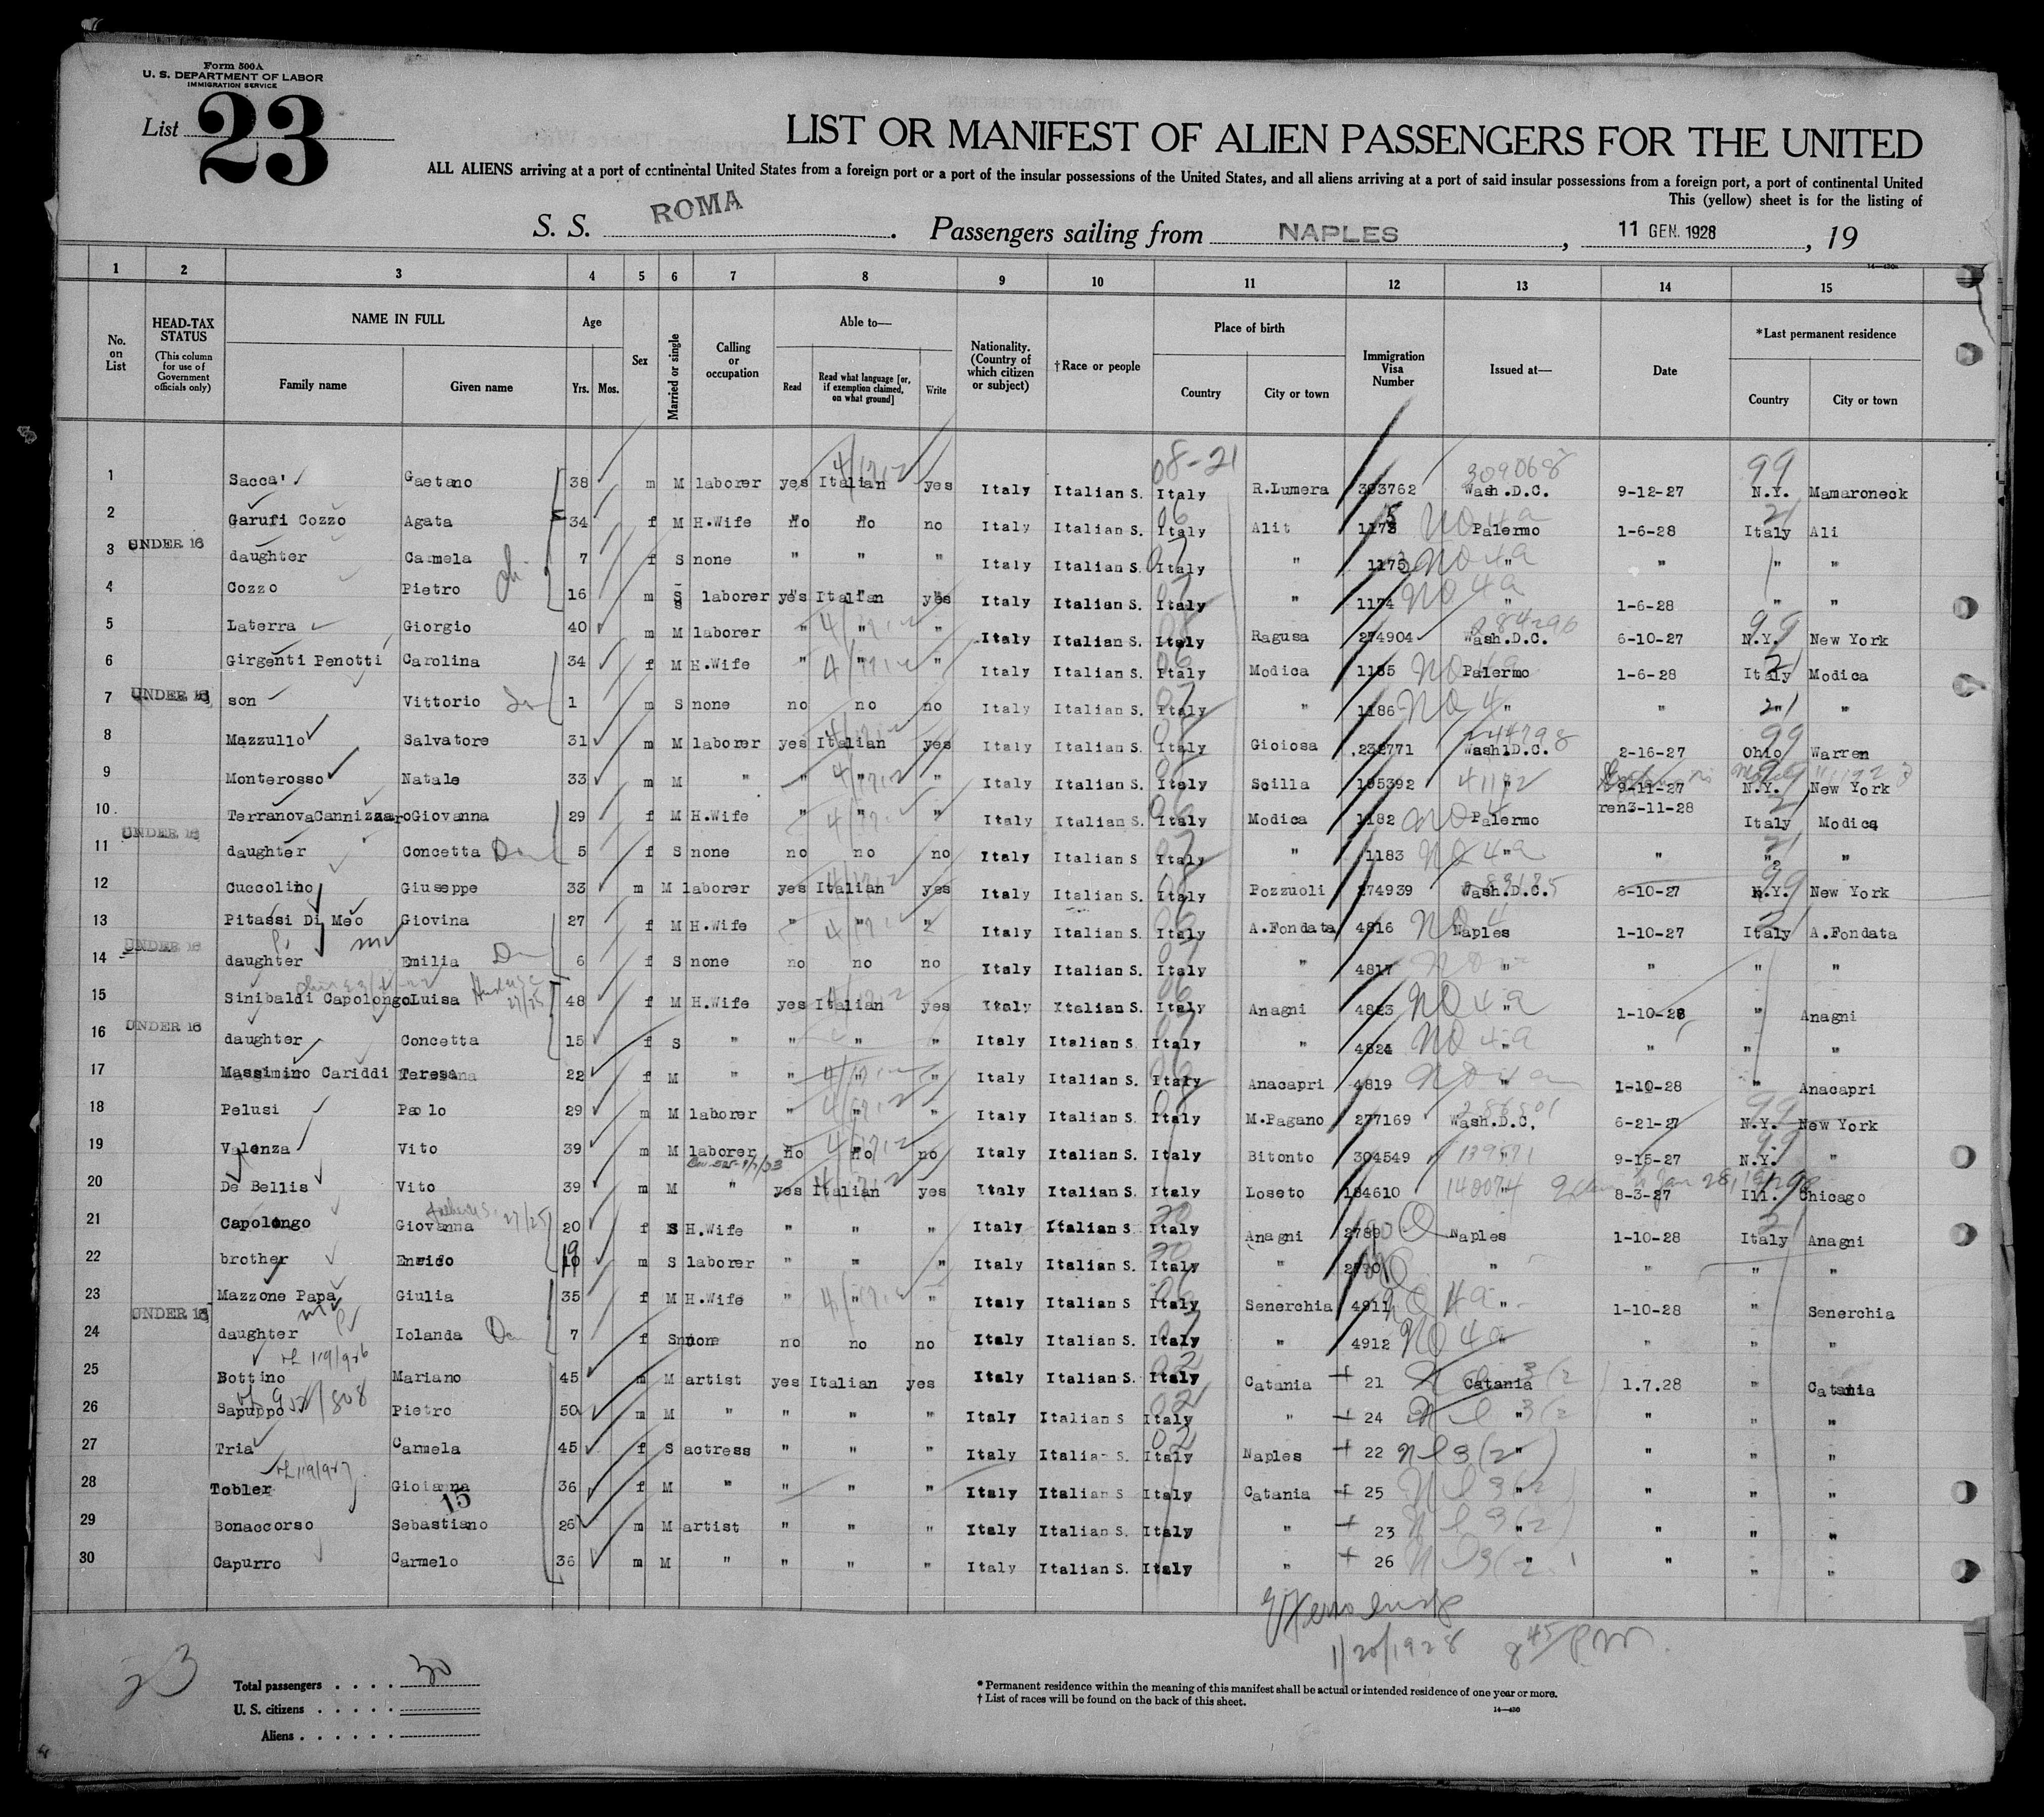 Form 500A
U. S. DEPARTMENT OF LABOR
IMMIGRATION SERVICE
List 23
LIST OR MANIFEST OF ALIEN PASSENGERS FOR THE UNITED
ALL ALIENS arriving at a port of continental United States from a foreign port or a port of the insular possessions of the United States, and all aliens arriving at a port of said insular possessions from a foreign port, a port of continental United
This (yellow) sheet is for the listing of
S. S. ROMA. Passengers sailing from NAPLES, 11 GEN. 1928, 19
14-430
1 2 3 4 5 6 7 8 9 10 11 12 13 14 15
No. on List
HEAD-TAX STATUS
(This column for use of Government officials only)
NAME IN FULL
Family name Given name
Age
Yrs. Mos.
Sex
Married or single
Calling or occupation
Able to—
Read
Read what language [or, if exemption claimed, on what ground]
Write
Nationality. (Country of which citizen or subject)
†Race or people
Place of birth
Country City or town
Immigration Visa Number
Issued at—
Date
*Last permanent residence
Country City or town
08-21 309068 99
1 Sacca' Gaetano 38 m M laborer yes Italian yes Italy Italian S. Italy R.Lumera 303762 Wash.D.C. 9-12-27 N.Y. Mamaroneck
2 Garufi Cozzo Agata 34 f M H.Wife No No no Italy Italian S. Italy Alit 1173 Palermo 1-6-28 Italy Ali
UNDER 16
3 daughter Carmela 7 f S none " " " Italy Italian S. Italy " 1175 " " " "
4 Cozzo Pietro 16 m S laborer yes Italian yes Italy Italian S. Italy " 1174 " 1-6-28 " "
5 Laterra Giorgio 40 m M laborer " " " Italy Italian S. Italy Ragusa 274904 Wash.D.C. 6-10-27 N.Y. New York
6 Girgenti Penotti Carolina 34 f M H.Wife " " " Italy Italian S. Italy Modica 1185 Palermo 1-6-28 Italy Modica
UNDER 16
7 son Vittorio 1 m S none no no no Italy Italian S. Italy " 1186 " " " "
8 Mazzullo Salvatore 31 m M laborer yes Italian yes Italy Italian S. Italy Gioiosa 232771 Wash.D.C. 2-16-27 Ohio Warren
9 Monterosso Natale 33 m M " " " " Italy Italian S. Italy Scilla 195392 " 9-11-27 N.Y. New York
ren3-11-28
10 Terranova Cannizzaro Giovanna 29 f M H.Wife " " " Italy Italian S. Italy Modica 1182 Palermo Italy Modica
UNDER 16
11 daughter Concetta 5 f S none no no no Italy Italian S Italy " 1183 " " " "
12 Cuccolino Giuseppe 33 m M laborer yes Italian yes Italy Italian S. Italy Pozzuoli 274939 Wash.D.C. 6-10-27 N.Y. New York
13 Pitassi Di Meo Giovina 27 f M H.Wife " " " Italy Italian S. Italy A.Fondata 4816 Naples 1-10-27 Italy A.Fondata
UNDER 16
14 daughter Emilia 6 f S none no no no Italy Italian S. Italy " 4817 " " " "
15 Sinibaldi Capolongo Luisa 48 f M H.Wife yes Italian yes Italy Italian S. Italy Anagni 4823 " 1-10-28 " Anagni
UNDER 16
16 daughter Concetta 15 f S " " " " Italy Italian S. Italy " 4824 " " " "
17 Massimino Cariddi Teresa 22 f M " " " " Italy Italian S. Italy Anacapri 4819 " 1-10-28 " Anacapri
18 Pelusi Paolo 29 m M laborer " " " Italy Italian S. Italy M.Pagano 277169 Wash.D.C. 6-21-27 N.Y. New York
19 Valenza Vito 39 m M laborer No No no Italy Italian S. Italy Bitonto 304549 " 9-15-27 N.Y. "
20 De Bellis Vito 39 m M " yes Italian yes Italy Italian S. Italy Loseto 184610 " 8-3-27 Ill. Chicago
21 Capolongo Giovanna 20 f S H.Wife " " " Italy Italian S. Italy Anagni 2789 Naples 1-10-28 Italy Anagni
22 brother Enrico 19 m S laborer " " " Italy Italian S. Italy " 2790 " " " "
23 Mazzone Papa Giulia 35 f M H.Wife " " " Italy Italian S Italy Senerchia 4911 " 1-10-28 " Senerchia
UNDER 16
24 daughter Iolanda 7 f S none no no no Italy Italian S. Italy " 4912 " " " "
25 Bottino Mariano 45 m M artist yes Italian yes Italy Italian S. Italy Catania 21 Catania 1.7.28 " Catania
26 Sapuppo Pietro 50 m M " " " " Italy Italian S Italy " 24 " " " "
27 Tria Carmela 45 f S actress " " " Italy Italian S Italy Naples 22 " " " "
28 Tobler Gioianna 36 f M " " " " Italy Italian S Italy Catania 25 " " " "
15
29 Bonaccorso Sebastiano 26 m M artist " " " Italy Italian S. Italy " 23 " " " "
30 Capurro Carmelo 36 m M " " " " Italy Italian S. Italy " 26 " " " "
1/20/1928 8 45/P.M.
23
Total passengers 30
U. S. citizens
Aliens
* Permanent residence within the meaning of this manifest shall be actual or intended residence of one year or more.
† List of races will be found on the back of this sheet.
14-430